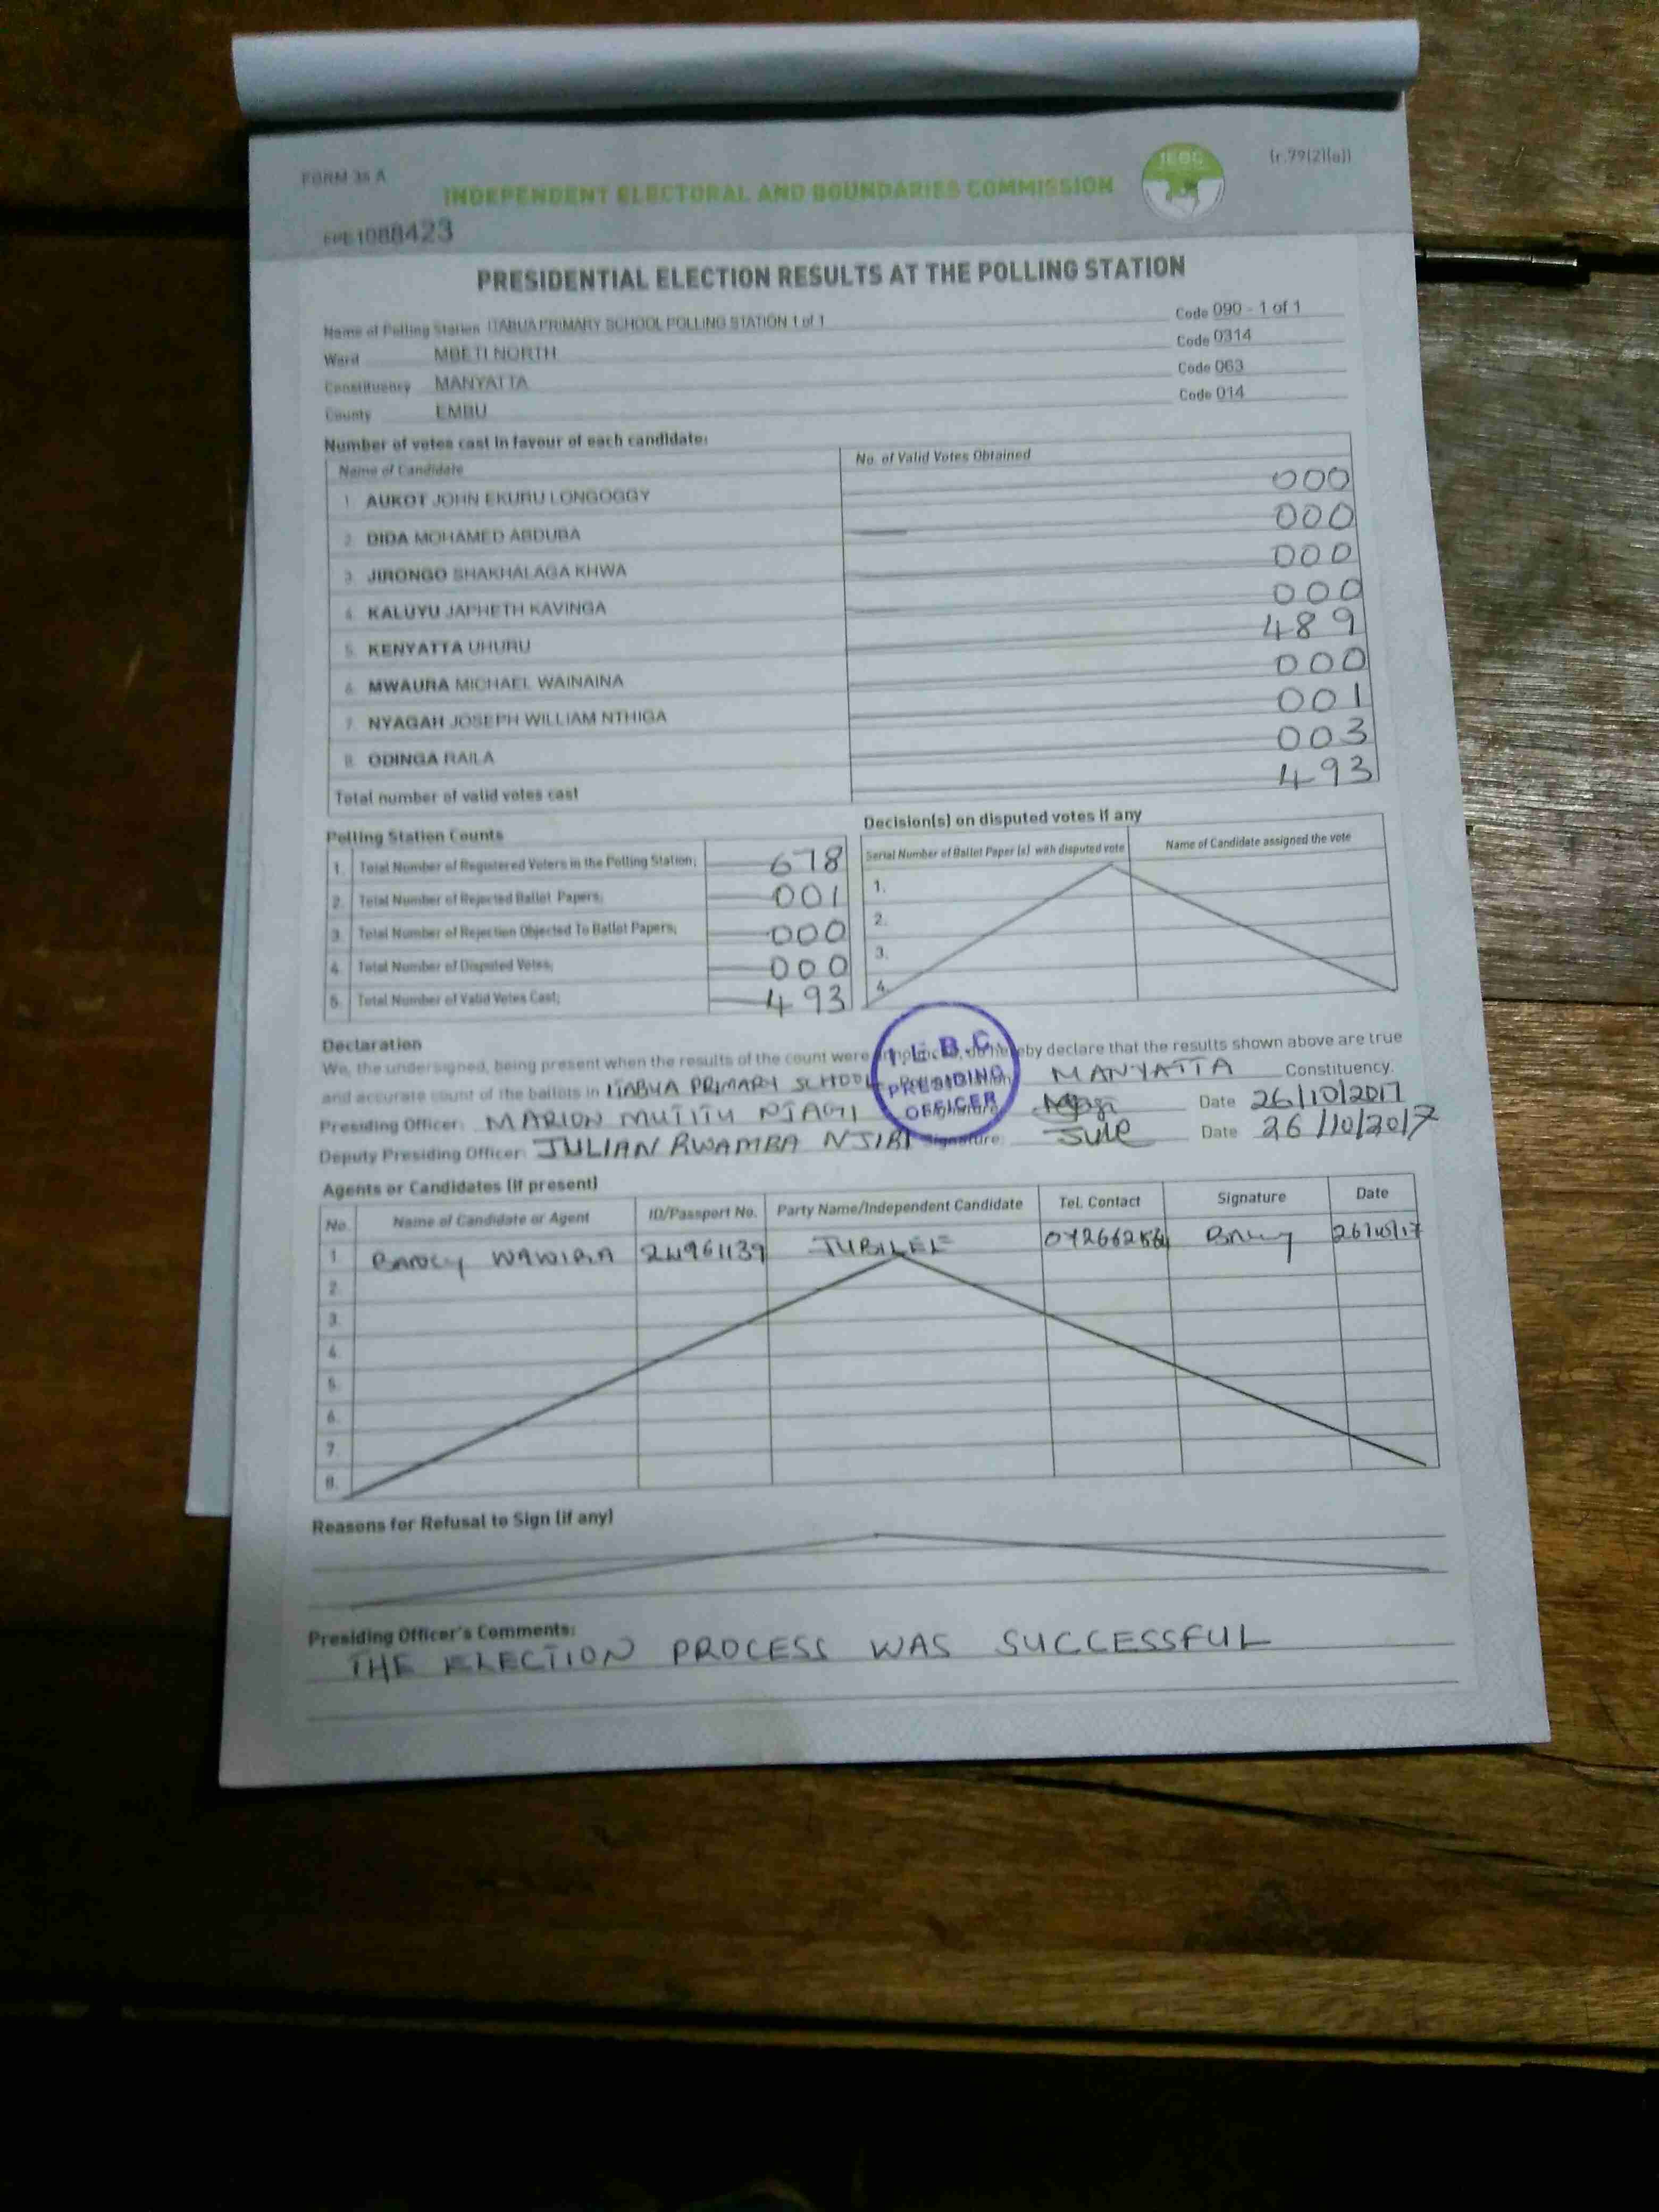 FORM 34 A
INDEPENDENT ELECTORAL AND BOUNDARIES COMMISSION
IEBC
(r.79(2)(a))
1088423
PRESIDENTIAL ELECTION RESULTS AT THE POLLING STATION
Name of Polling Station ITABUA PRIMARY SCHOOL POLLING STATION 1 of 1 Code 090 - 1 of 1
Ward MBETI NORTH Code 0314
Constituency MANYATTA Code 063
County EMBU Code 014
Number of votes cast in favour of each candidate:
Name of Candidate No. of Valid Votes Obtained
1. AUKOT JOHN EKURU LONGOGGY 000
2. DIDA MOHAMED ABDUBA 000
3. JIRONGO SHAKHALAGA KHWA 000
4. KALUYU JAPHETH KAVINGA 000
5. KENYATTA UHURU 489
6. MWAURA MICHAEL WAINAINA 000
7. NYAGAH JOSEPH WILLIAM NTHIGA 001
8. ODINGA RAILA 003
Total number of valid votes cast 493
Polling Station Counts
1. Total Number of Registered Voters in the Polling Station; 678
2. Total Number of Rejected Ballot Papers; 001
3. Total Number of Rejection Objected To Ballot Papers; 000
4. Total Number of Disputed Votes; 000
5. Total Number of Valid Votes Cast; 493
Decision(s) on disputed votes if any
Serial Number of Ballot Paper (s) with disputed vote Name of Candidate assigned the vote
1.
2.
3.
4.
Declaration
We, the undersigned, being present when the results of the count were hereby declare that the results shown above are true
and accurate count of the ballots in ITABUA PRIMARY SCHOOL MANYATTA Constituency.
I.E.B.C
PRESIDING
OFFICER
Presiding Officer: MARION MUTITU NJAGI Date 26/10/2017
Deputy Presiding Officer: JULIAN RWAMBA NJIRI Signature: Jule Date 26/10/2017
Agents or Candidates (if present)
No. Name of Candidate or Agent ID/Passport No. Party Name/Independent Candidate Tel. Contact Signature Date
1. BANCY WAWIRA 24961139 JUBILEE 26/10/17
2.
3.
4.
5.
6.
7.
8.
Reasons for Refusal to Sign (if any)
Presiding Officer's Comments:
THE ELECTION PROCESS WAS SUCCESSFUL